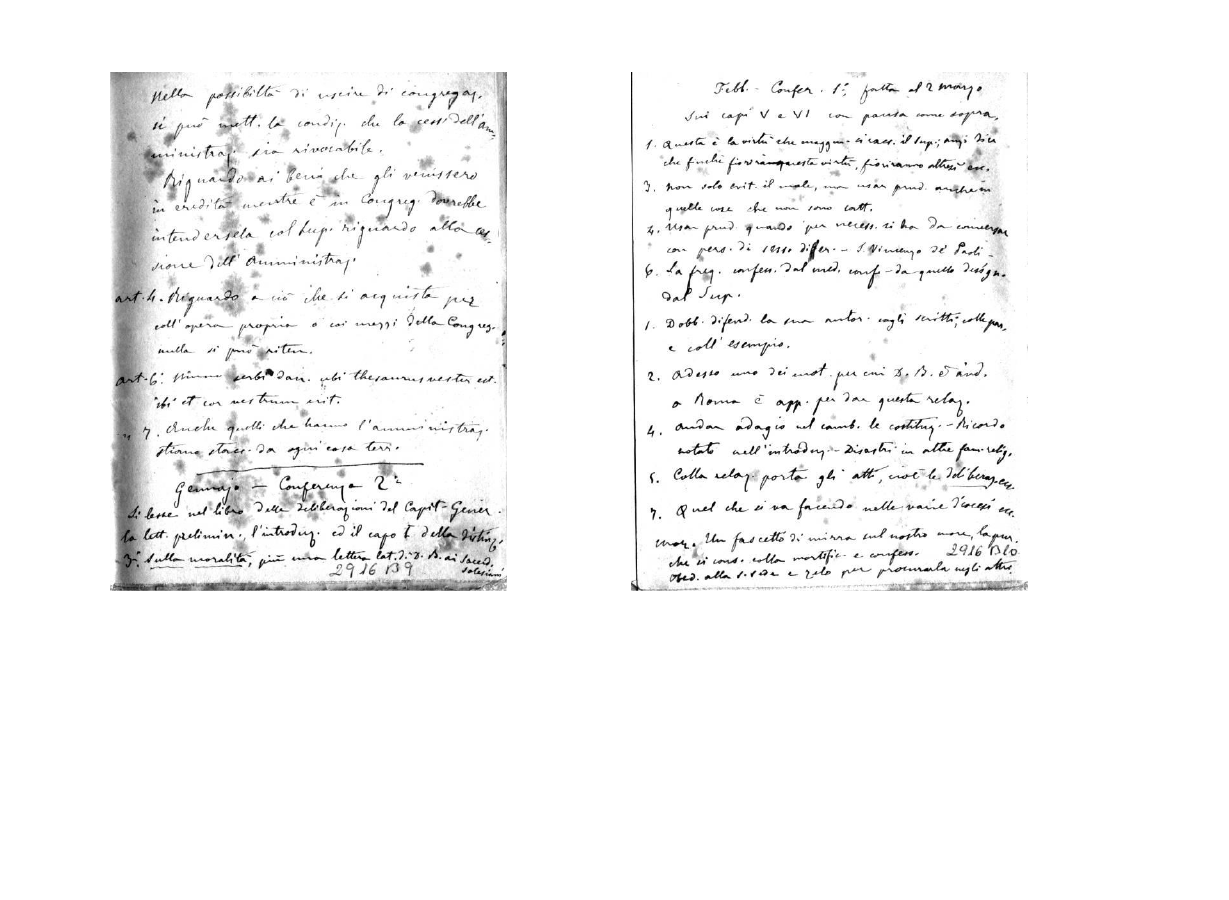 Nella possibiltà di uscire di congregaz.
si può mett. la condiz. che la cess. dell'am-
ministraz. sia rivocabile.
Riguardo ai beni che gli venissero
in eredità mentre è in Congreg. dovrebbe
intendersela col Sup. riguardo alla ces-
sione dell'Amministraz.
art. 4. Riguardo a ciò che si acquista per
coll'opera propria o coi mezzi della Congreg.
nulla si può riten.
art. 6. ubi thesaurus vester est
ibi et cor vestrum erit.
" 7. Anche quelli che hanno l'amministraz.
stiano stacc. da ogni cosa terr.
Gennajo – Conferenza 2ª
Si lesse nel libro delle deliberazioni del Capit. Gener.
la lett. prelimin. l'introduz. ed il capo I della distinz.
3ª sulla moralità, più una lettera lat. di D. B. ai Saced.
salesiani
2916 B9
Febb. – Confer. 1ª, fatta al 2 marzo
Sui capi V e VI con pausa come sopra.
1. Questa è la virtù che maggior. si racc. il Sup; anzi dice
che finchè fiorirà questa virtù, fioriranno altresì ecc.
3. Non solo evit. il male, ma usar prud. anche in
quelle cose che non sono catt.
4. Usar prud. quando per necess. si ha da conversar
con pers. di sesso differ. – S. Vincenzo de' Paoli –
6. La freq. confess. dal med. conf. – da quello design.
dal Sup.
1. Dobb. difend. la sua autor. cogli scritti, colle par.
e coll'esempio.
2. Adesso uno dei mot. per cui D. B. è and.
a Roma è app. per dar questa relaz.
4. Andar adagio nel camb. le costituz. – Ricordo
notato nell'introduz. – Disastri in altre fam. relig.
5. Colla relaz. porta gli atti, cioè le deliberaz. ecc.
7. Quel che si va facendo nelle varie diocesi ecc.
Un fascetto di mirra sul nostro cuore, la pur.
che si cons. colla mortific. e confess.
2916 B10
obed. alla S. Sede e zelo per procurarla negli altri.